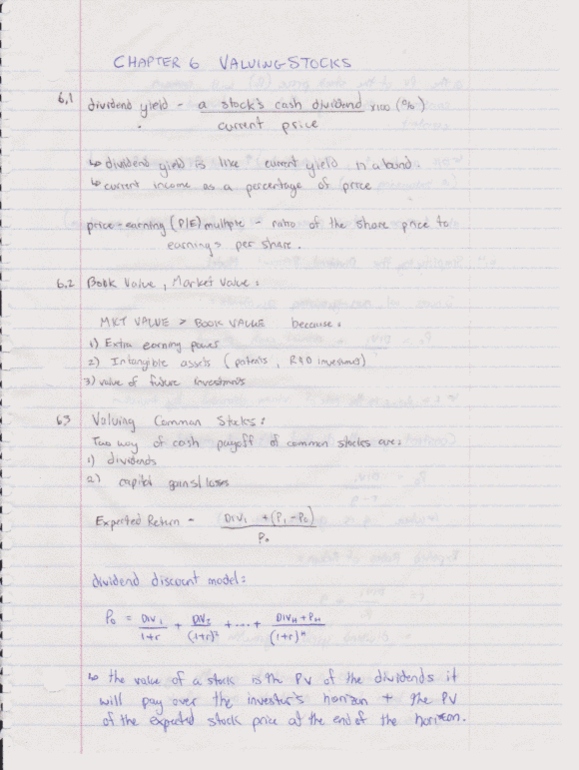 CHAPTER 6 VALUING STOCKS
6.1 dividend yield - a stock's cash dividend x100 (%)
current price
↳ dividend yield is like current yield in a bond.
↳ current income as a percentage of price
price-earning (P/E) multiple - ratio of the share price to
earnings per share.
6.2 Book Value, Market Value:
MKT VALUE > BOOK VALUE because:
1) Extra earning power
2) Intangible assets (patents, R&D investment)
3) value of future investments
6.3 Valuing Common Stocks:
Two way of cash payoff of common stocks are:
1) dividends
2) capital gains/losses
Expected Return - (DIV₁ + (P₁ - P₀)
P₀
dividend discount model:
P₀ = DIV₁ + DIV₂ + ... + DIV_H + P_H
1+r (1+r)² (1+r)^H
↳ the value of a stock is the PV of the dividends it
will pay over the investor's horizon + the PV
of the expected stock price at the end of the horizon.